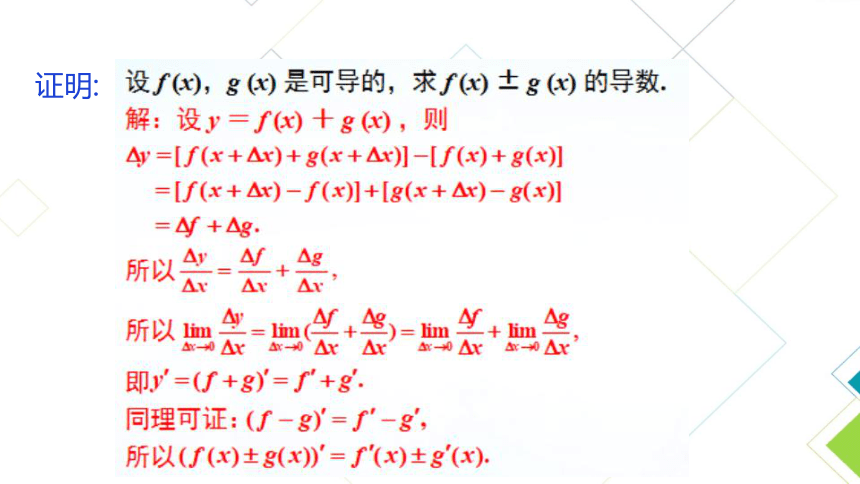 证明: 设 f (x)，g (x) 是可导的，求 f (x) ± g (x) 的导数.
解：设 y ＝ f (x) ＋ g (x) ，则
Δy =[ f (x + Δx) + g(x + Δx)] −[ f (x) + g(x)]
= [f (x + Δx) − f (x)]+[g(x + Δx) − g(x)]
= Δf + Δg.
所以 Δy/Δx = Δf/Δx + Δg/Δx ,
所以 lim_{Δx→0} Δy/Δx = lim_{Δx→0} (Δf/Δx + Δg/Δx) = lim_{Δx→0} Δf/Δx + lim_{Δx→0} Δg/Δx ,
即y′ = (f + g)′ = f′ + g′.
同理可证：(f − g)′ = f′ − g′,
所以 (f (x) ± g(x))′ = f′(x) ± g′(x).